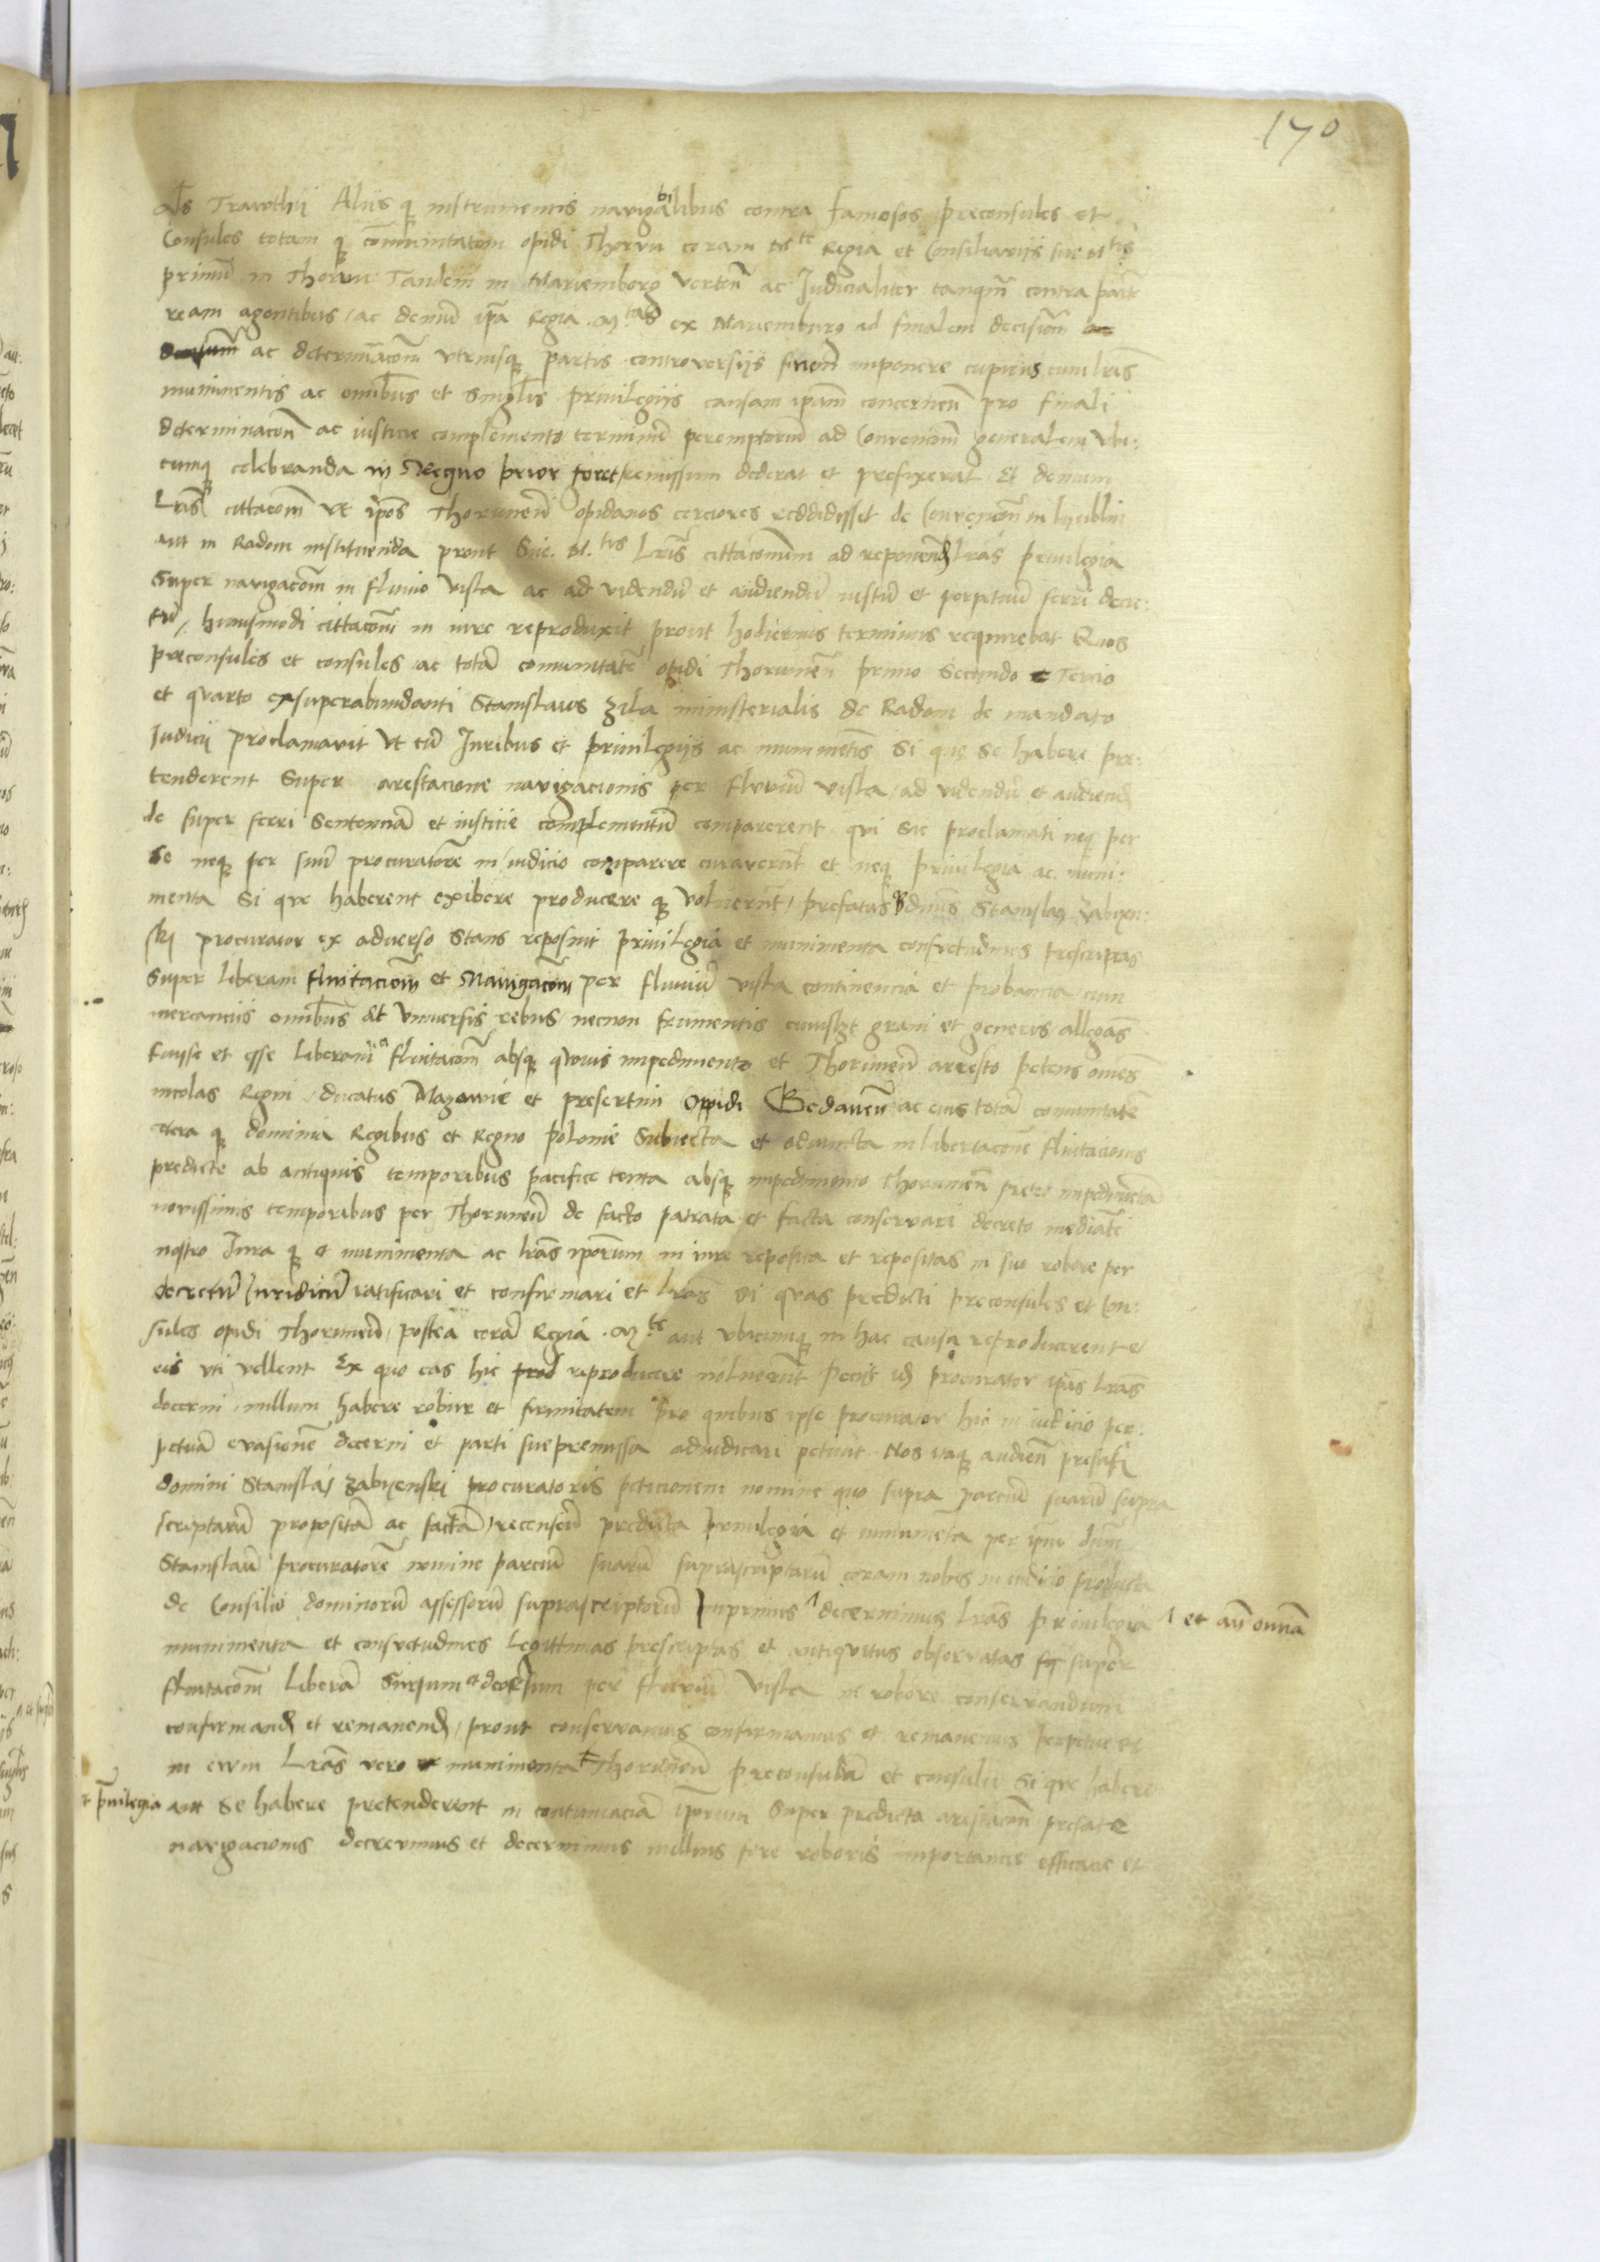 170
als Trawthij Aliis q instrumentis navigabilibus contra famosos preconsules et
Consules totam q commnitatem opidi Thorun coram Mte Regia et Consiliariis sue Mtis
primu in Thorun Tandem in Mariemborg verten ac Judicialiter tanqm contra parte
ream agentibus / ac demu ipa Regia Mtas ex Mariemburg ad finalem decisiom
ac determinacom utriusq partis controversiis finem imponere cupiens cum lris
munimentis ac omibus et singlis privilegiis causam ipam concerneu pro finali
determinacon ac iusticie complemento terminu peremptoriu ad Convencom generalem Vbi:
cumq celebranda in Regno prior foret remissum dederat et prefixerat Et demum
Lris cittacom vt ipos Thoruneu opidanos cerciores reddidisset de Convencom in lyublin
aut in Radom instituenda prout Sue. M.tis Lris cittaconum ad reponend lras privilegia
Super navigacom in fluvio Visla ac ad videndu et audiendu iustu et perpetuu ferri decre:
tu / huiusmodi cittacom in iure reproduxit prout hodiernus terminus requirebat Quos
preconsules et consules ac tota comunitate opidi Thorunen primo Secundo Tercio
et quarto exsuperabundanti Stanislaus Zila ministerialis de Radom de mandato
Judicii proclamavit vt cu Juribus et privilegiis ac munimetis Si que se habere pre:
tenderent Super arestacione navigacionis per fluviu visla / ad videndu et audiend
de super ferri Sentencia et iusticie complementum comparerent qui sic proclamati neq per
se neq per suu procuratore in iudicio comparere curaverut et neq privilegia ac muni:
menta Si que haberent exibere producere q voluerut / prefatus dnus Stanislaus Zabyen:
ski procurator ex adverso Stans reposuit privilegia et munimenta consuetudines prescriptas
Super liberam fluitaciom et Navigacom per fluviu visla continencia et probancia cum
mercanciis omibus et vniversis rebus necnon frumentis cuiuslzt grani et generis allegas
fuisse et esse liberam fluitacom absq quovis impedimento et Thoruneu arresto petens omes
incolas Regni / ducatus Mazowie et presertim Oppidi Gedaneu ac eius tota comunitate
cetera q dominia Regibus et Regno polonie Subiecta et adiuncta in libertacione fluitacionis
predicte ab antiquis temporibus pacifice tenta absq impedimento Thorunen preter impedimeta
novissimis temporibus per Thoruneu de facto patrata et facta conservari decreto mediate
nostro Jura q et munimenta ac lras iporum in iure reposita et repositas in suo robore per
decretu Juridicu ratificari et confirmari et lras Si quas predicti preconsules et Con:
sules opidi Thoruneu / postea cora Regia Mte aut vbicumq in hac causa reproducerent et
eis vti vellent Ex quo eas hic reproducere noluerut Petit id procurator ipas lras
decerni / nullum habere robur et firmitatem Pro quibus ipse procurator hic in iudicio per:
petua evasione decerni et parti sue premissa adiudicari petivit Nos itaq audien prefati
domini Stanislai Zabyenski procuratoris peticionem nomine quo supra parciu suaru supra
scriptaru proposita ac facta / recenseu predicta privilegia et munimeta per ipm dnm
Stanislau procuratore nomine parciu suaru suprascriptaru coram nobis in iudicio producta
de Consilio dominoru assessoru suprascriptoru Inprimis decernimus lras privilegia
munimenta et consuetudines legittimas prescriptas et antiquitus observatas super
fluitacom libera Sursum et deorsum per fluviu Visla in robore conservandum
confirmand et remanend / prout conservamus confirmamus et remanemus perpetue et
in evum Lras vero munimenta Thoruneu preconsulu et consulu Si que habere
et privilegia aut Se habere pretenderent in contumacia iporum Super predicta arestacom prefate
navigacionis decrevimus et decernimus nullius fere roboris importancie efficacie et